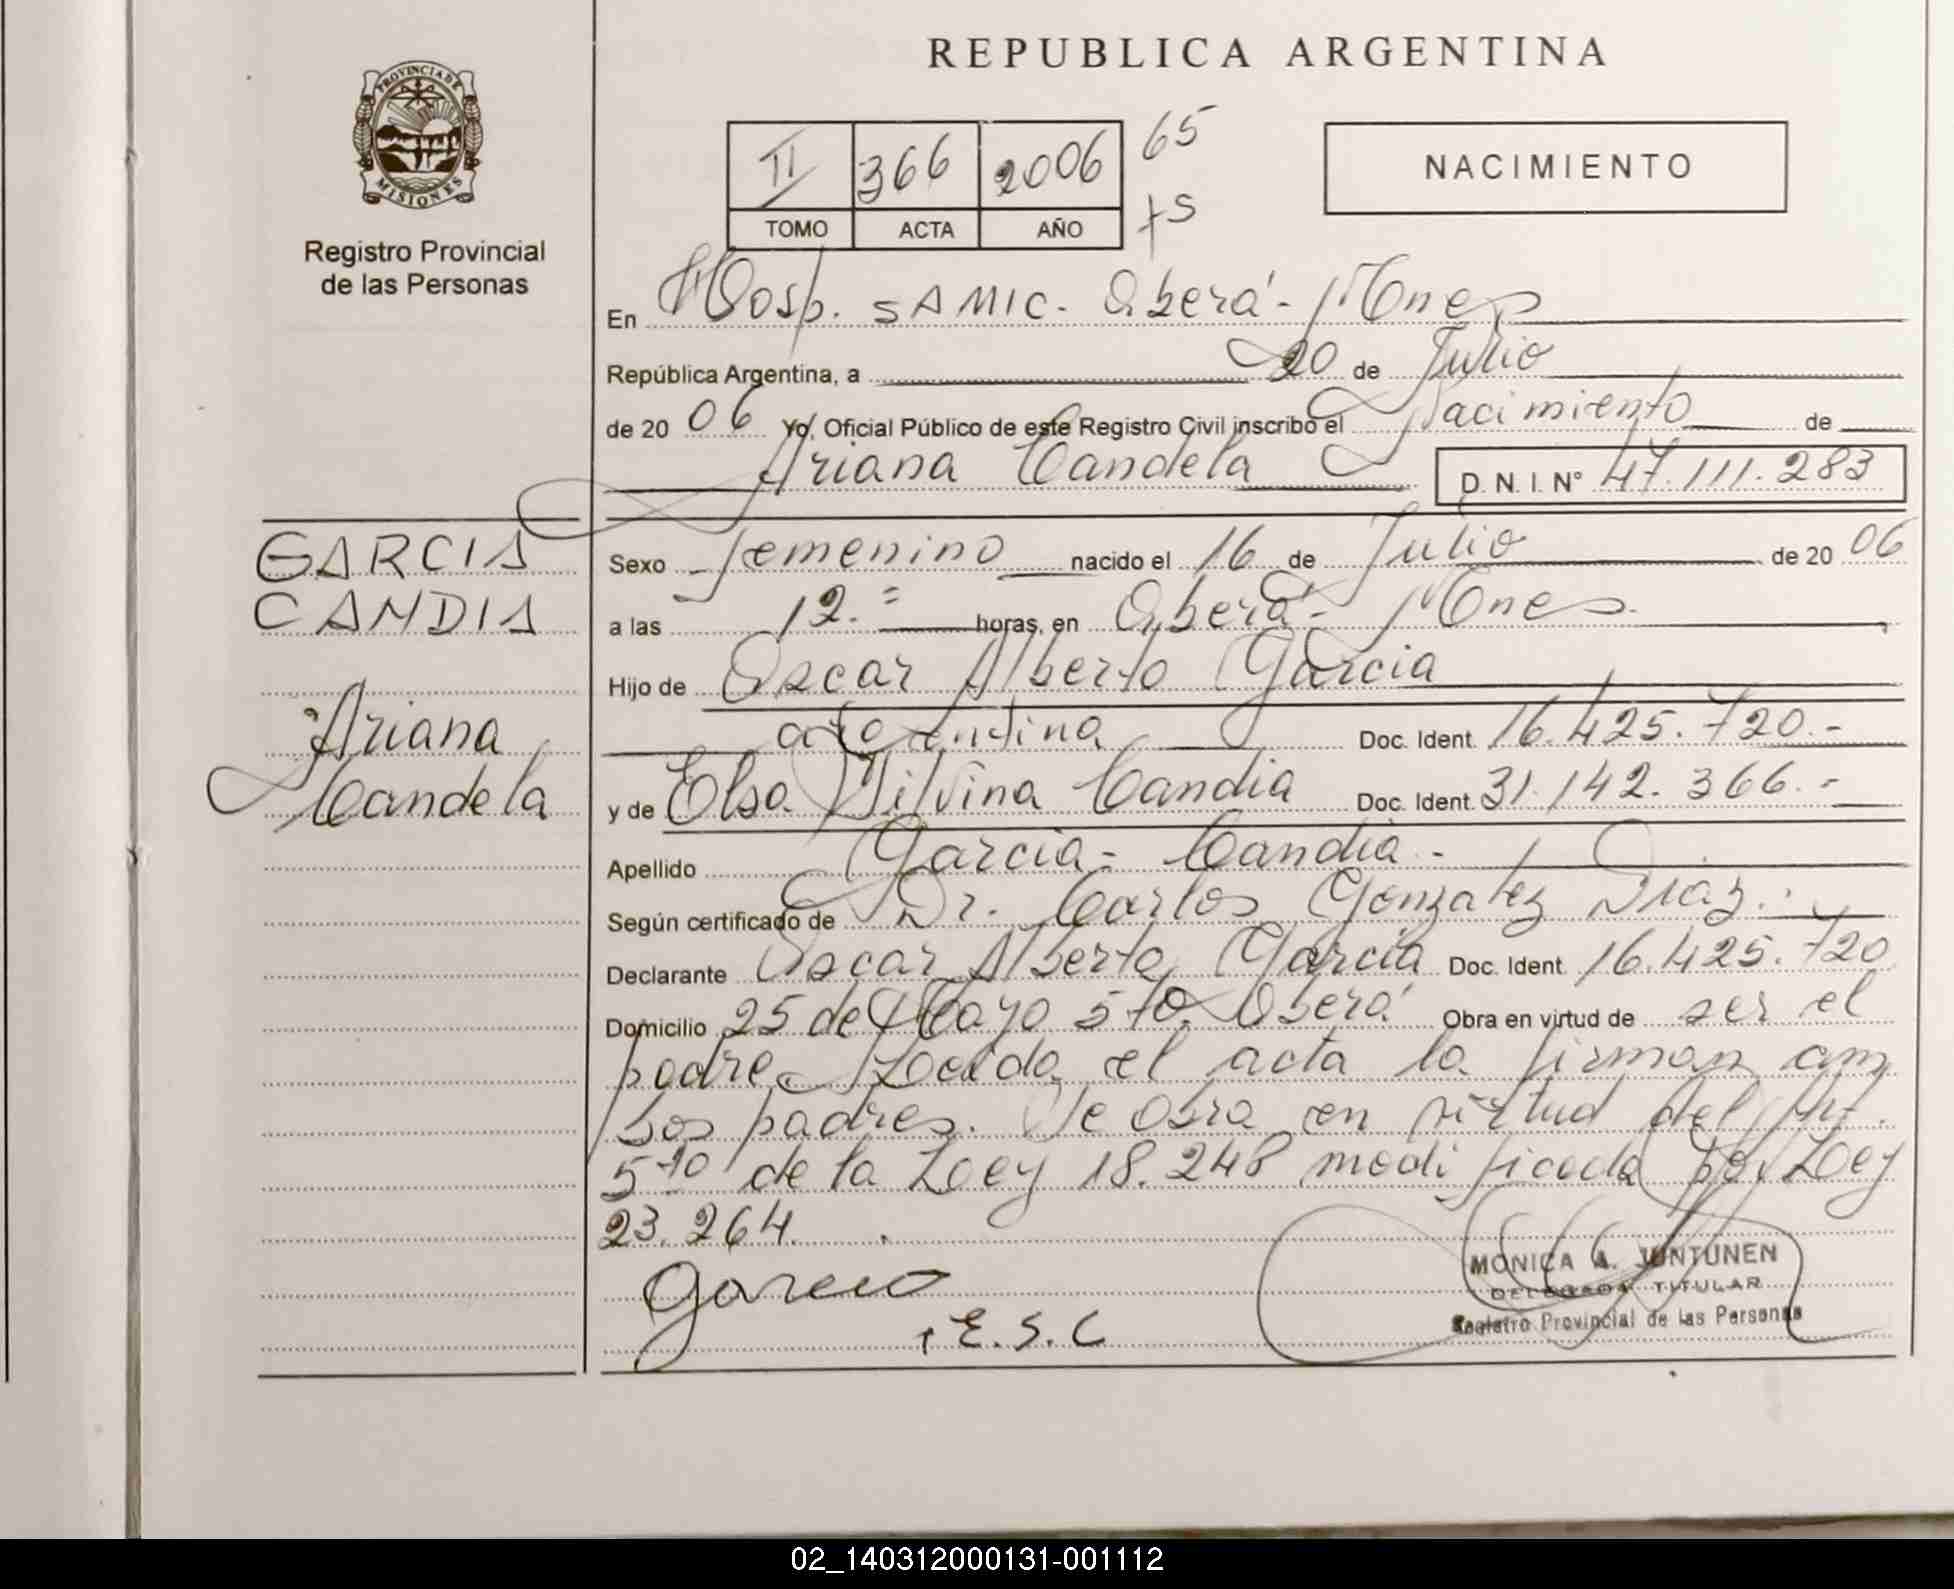 REPUBLICA ARGENTINA
PROVINCIA DE
MISIONES
Registro Provincial
de las Personas
II 366 2006 65
TOMO ACTA AÑO
NACIMIENTO
En Hosp. SAMIC. Oberá - Mnes
República Argentina, a 20 de Julio
de 20 06 Yo, Oficial Público de este Registro Civil inscribo el Nacimiento de
Ariana Candela D.N.I. N° 47.111.283
GARCIA
CANDIA
Ariana
Candela
Sexo femenino nacido el 16 de Julio de 20 06
a las 12.= horas, en Oberá - Mnes.
Hijo de Oscar Alberto Garcia
argentina Doc. Ident. 16.425.720.-
y de Elsa Silvina Candia Doc. Ident. 31.142.366.-
Apellido Garcia - Candia -
Según certificado de Dr. Carlos Gonzalez Diaz.
Declarante Oscar Alberto Garcia Doc. Ident. 16.425.720
Domicilio 25 de Mayo 570. Oberá Obra en virtud de ser el
padre. Leida el acta la firman am
bos padres. Se obra en virtud del Art.
5to de la Ley 18.248 modificada por Ley
23.264.
Garcia
E.S.C
MONICA A. JUNTUNEN
DELEGADA TITULAR
Registro Provincial de las Personas
02_140312000131-001112